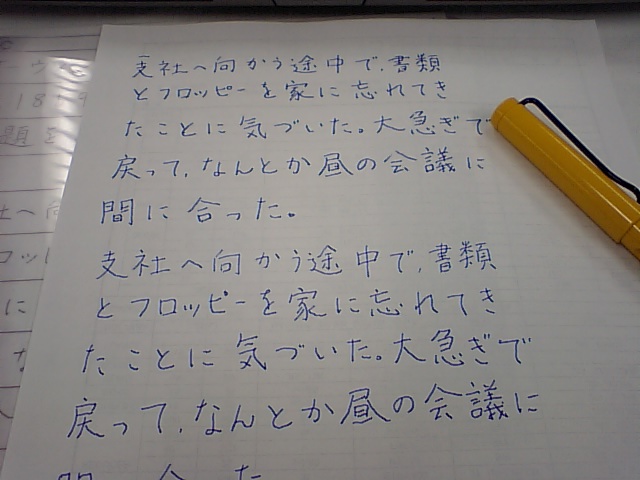 支社へ向かう途中で、書類
とフロッピーを家に忘れてき
たことに気づいた。大急ぎで
戻って、なんとか昼の会議に
間に合った。
支社へ向かう途中で、書類
とフロッピーを家に忘れてき
たことに気づいた。大急ぎで
戻って、なんとか昼の会議に